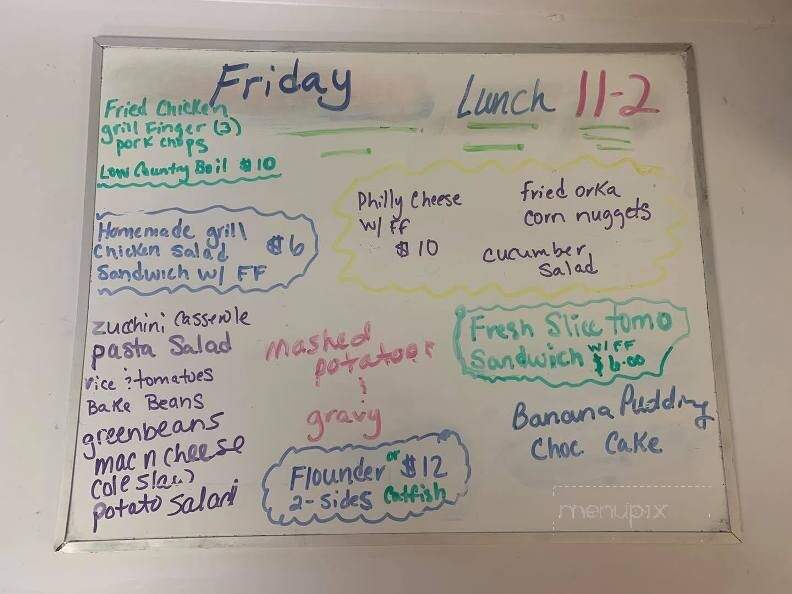 Friday
Lunch 11-2
Fried Chicken
grill Finger (3)
pork chops
Low Country Boil $10
Homemade grill
Chicken Salad $6
Sandwich w/ FF
Philly Cheese
w/ FF
$10
fried orka
corn nuggets
cucumber
Salad
zucchini Casserole
pasta Salad
rice & tomatoes
Bake Beans
greenbeans
mac n cheese
cole slaw
potato Salad
mashed
potatoes
&
gravy
Fresh Slice tomo
Sandwich w/FF
$6.00
Flounder or $12
2-sides Catfish
Banana Pudding
Choc Cake
menupix